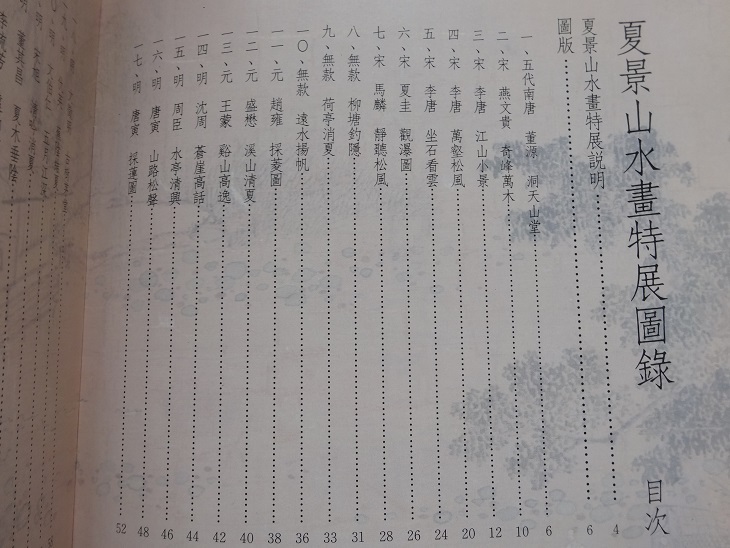 夏景山水畫特展圖錄 目次
夏景山水畫特展說明 4
圖版 6
一、五代南唐 董源 洞天山堂 6
二、宋 燕文貴 奇峰萬木 10
三、宋 李唐 江山小景 12
四、宋 李唐 萬壑松風 20
五、宋 李唐 坐石看雲 24
六、宋 夏圭 觀瀑圖 26
七、宋 馬麟 靜聽松風 28
八、無款 柳塘釣隱 31
九、無款 荷亭消夏 33
一〇、無款 遠水揚帆 36
一一、元 趙雍 採菱圖 38
一二、元 盛懋 溪山清夏 40
一三、元 王蒙 谿山高逸 42
一四、明 沈周 蒼崖高話 44
一五、明 周臣 水亭清興 46
一六、明 唐寅 山路松聲 48
一七、明 唐寅 採蓮圖 52